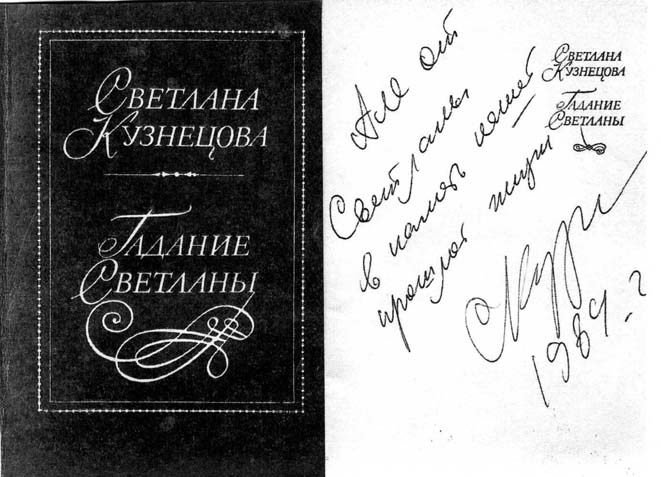 Светлана
Кузнецова
Гадание
Светланы
Светлана
Кузнецова
Гадание
Светланы
Але от
Светланы
в память нашей
прошлой жизни
1984 г